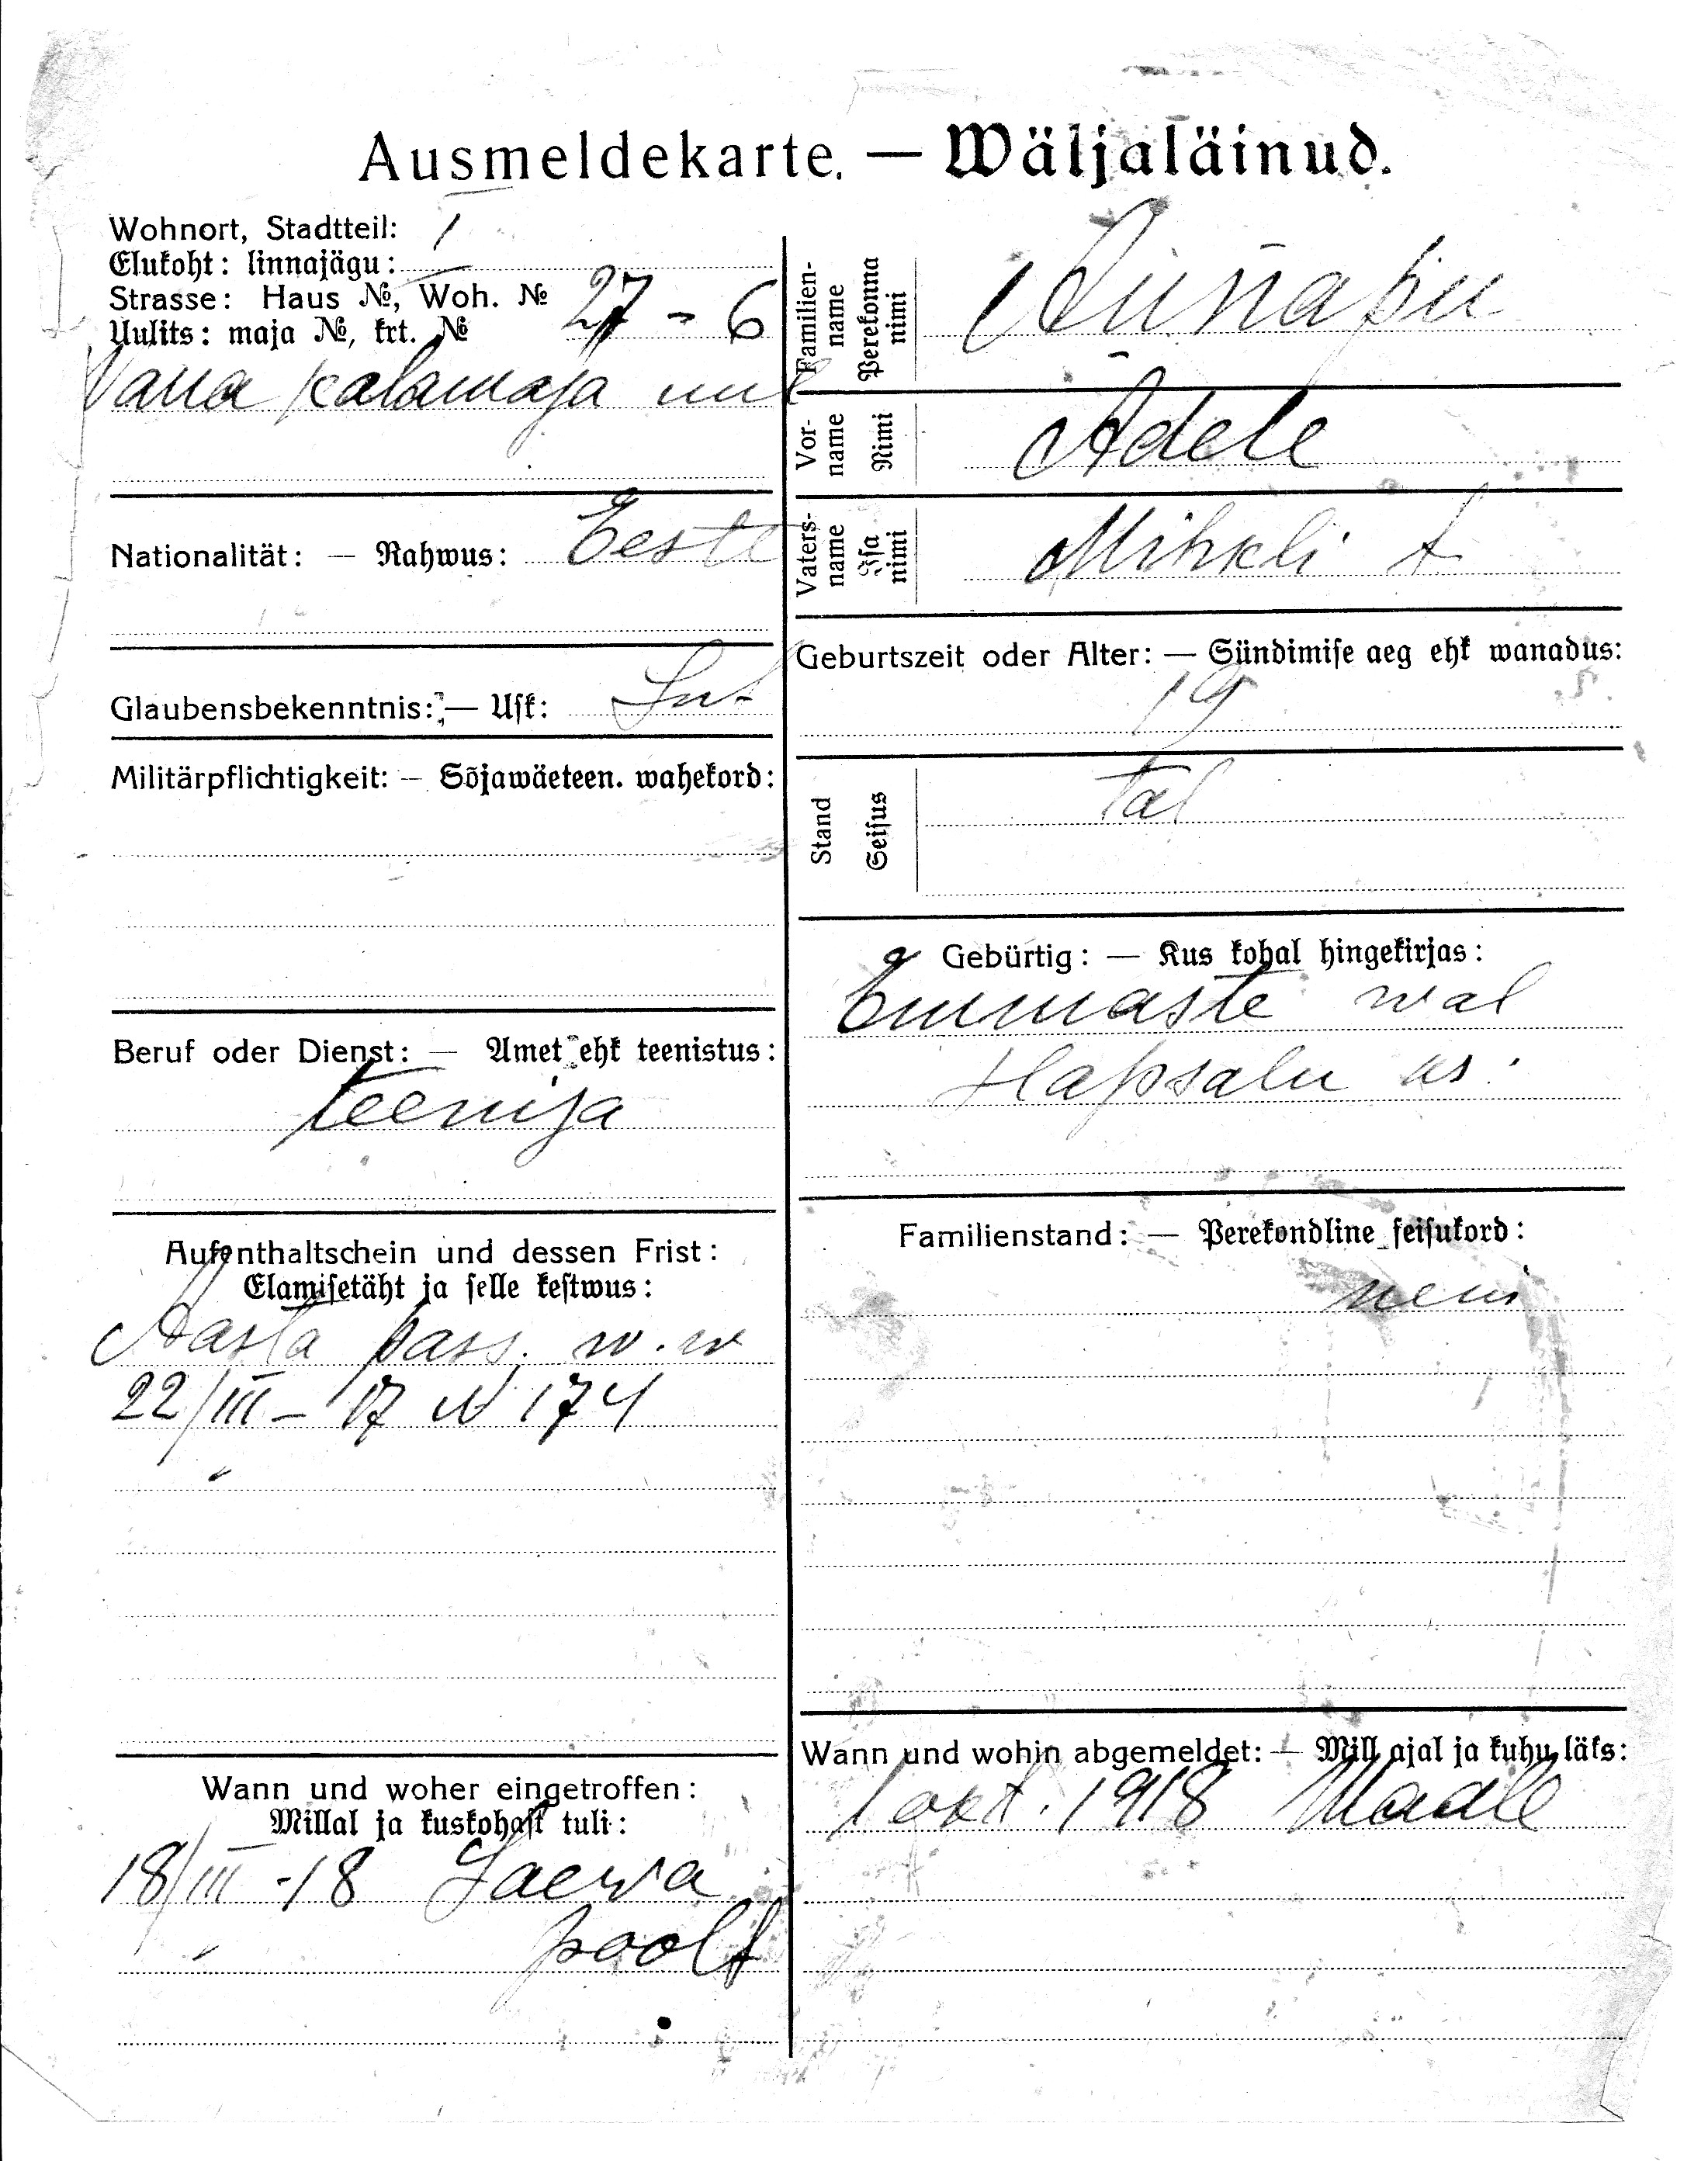 Ausmeldekarte. — Wäljaläinud.
Wohnort, Stadtteil: I
Elukoht: linnajägu:
Strasse: Haus №, Woh. № 27 - 6
Uulits: maja №, krt. №
Wana kalamaja uul
Nationalität: — Rahwus: Eesti
Glaubensbekenntnis: — Usk: Lut
Militärpflichtigkeit: — Sõjawäeteen. wahekord:
Beruf oder Dienst: — Amet ehk teenistus:
teenija
Aufenthaltschein und dessen Frist:
Elamisetäht ja selle kestwus:
Aasta pass. w. w
22/III - 17 N 174
Wann und woher eingetroffen:
Millal ja kuskohast tuli:
18/III - 18
poolt
Familien-
name
Perekonna
nimi
Vor-
name
Nimi
Adele
Vaters-
name
Isa
nimi
Mihkli t
Geburtszeit oder Alter: — Sündimise aeg ehk wanadus:
19
Stand
Seisus
tal
Gebürtig: — Kus kohal hingekirjas:
Emmaste wal
Hapsalu kr.
Familienstand: — Perekondline seisukord:
neiu
Wann und wohin abgemeldet: — Mill ajal ja kuhu läks:
1 okt. 1918 Maale